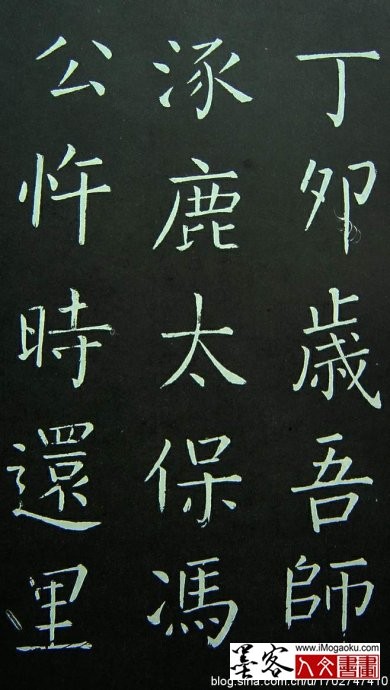 丁卯歲吾師
涿鹿太保馮
公忤時還里
墨客
www.iMogaoku.com
人文書畫
blog.sina.com.cn/u/1702747410